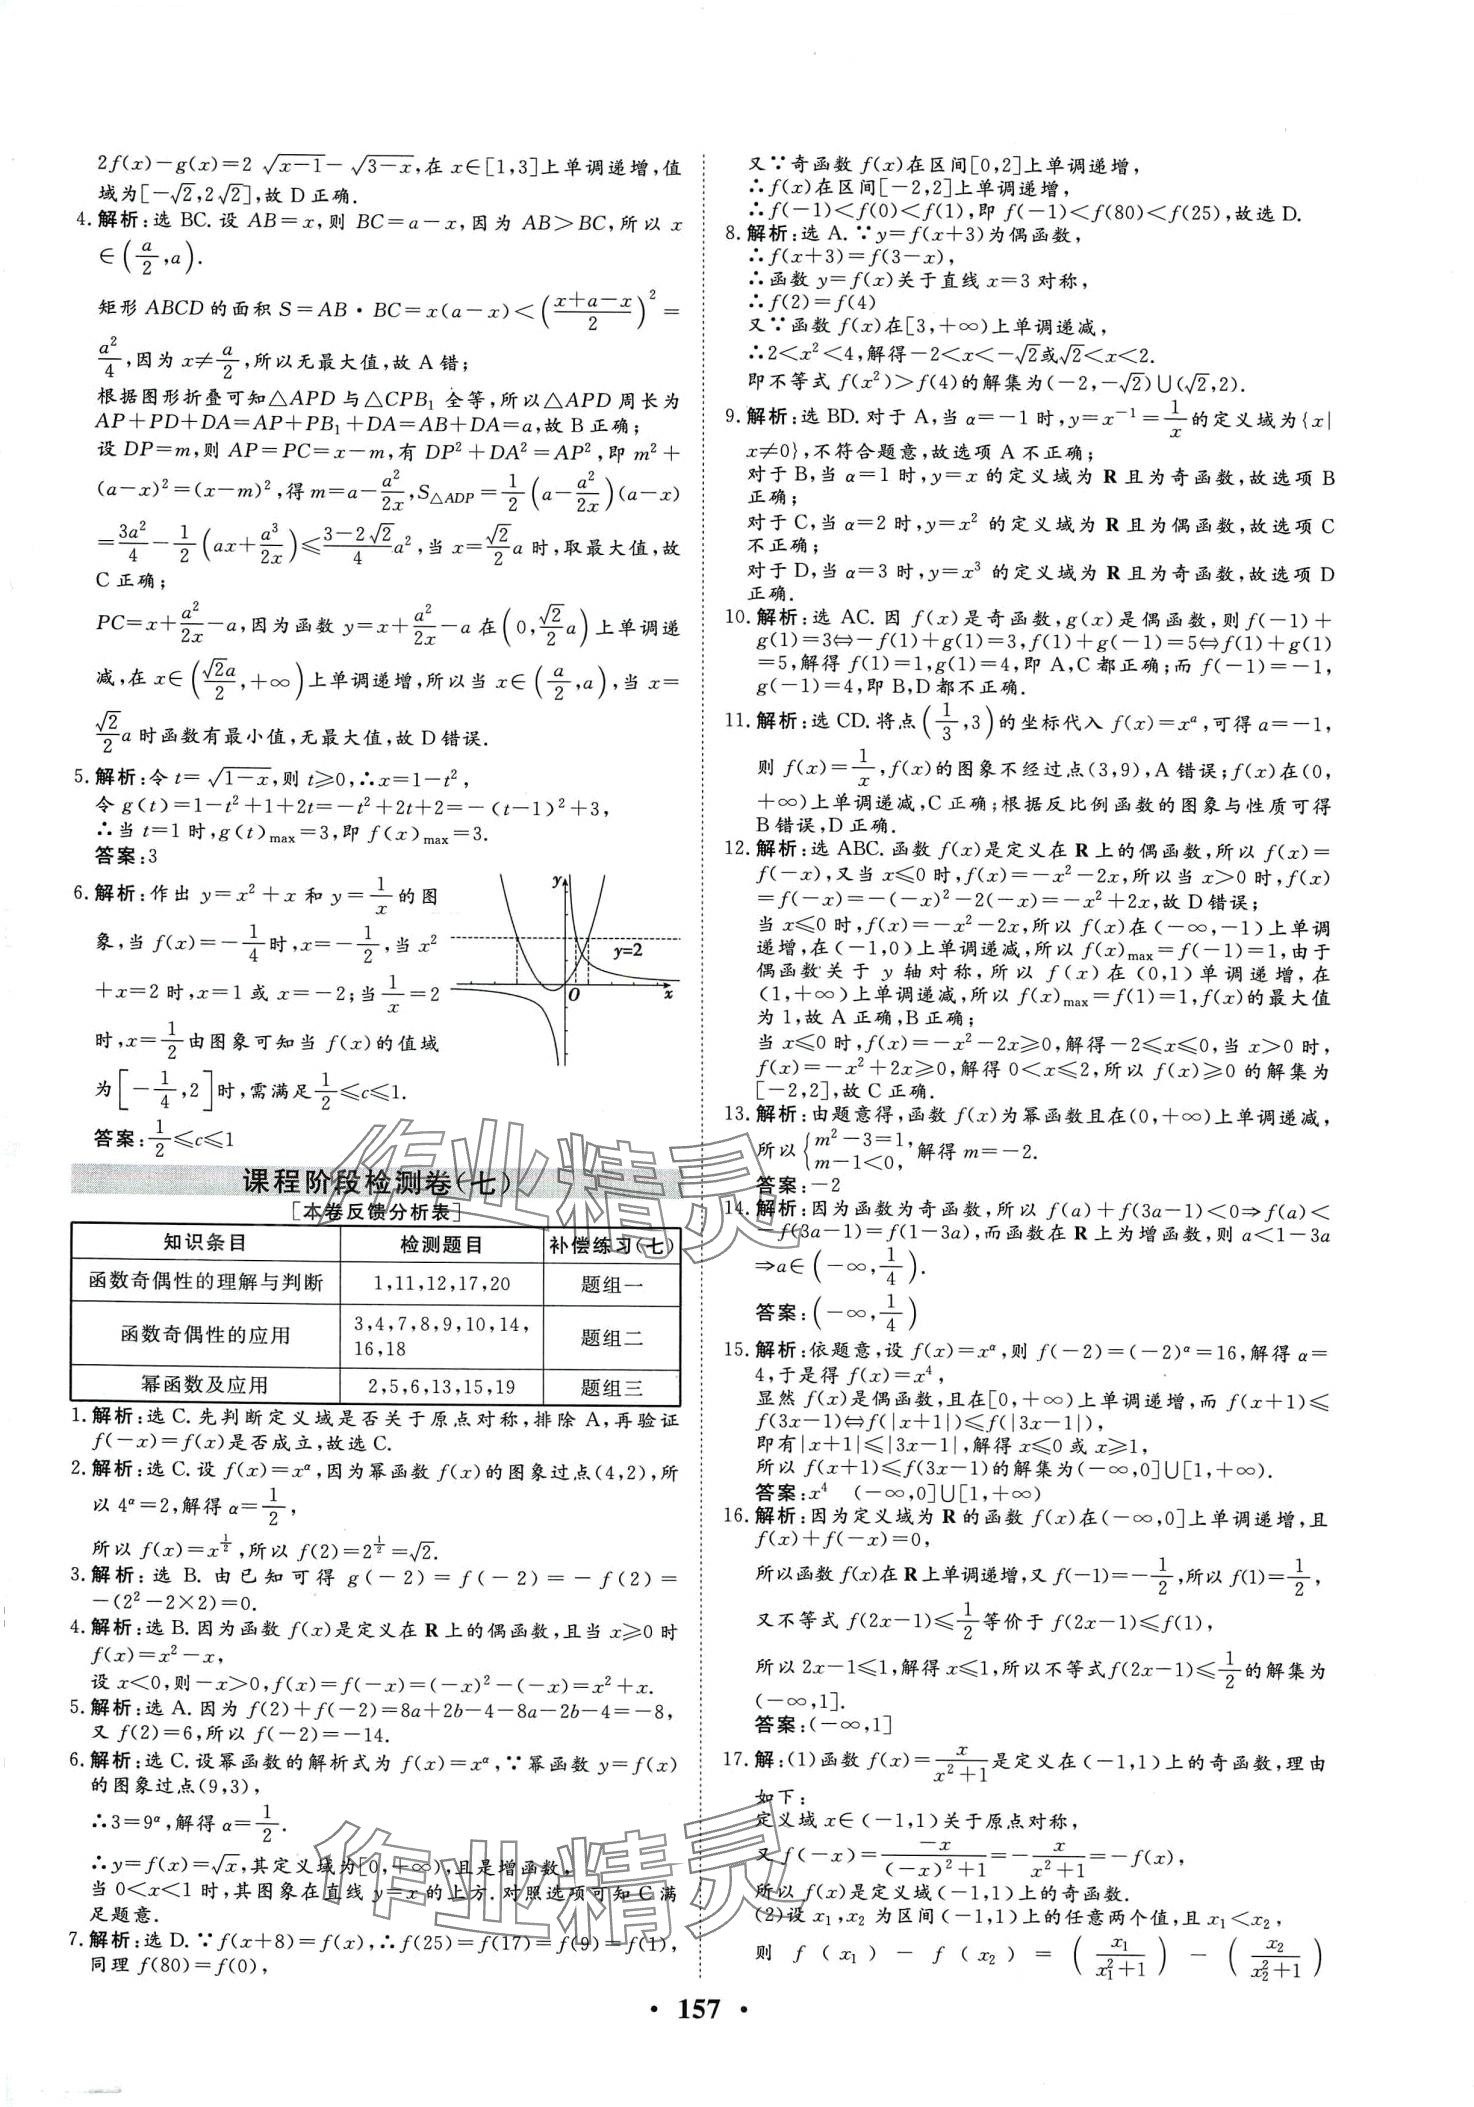 2f(x)-g(x)=2√(x-1)-√(3-x),在 x∈[1,3]上单调递增,值
域为[-√2,2√2],故 D 正确.
4.解析:选 BC.设 AB=x,则 BC=a-x,因为 AB>BC,所以 x
∈(a/2,a).
矩形 ABCD 的面积 S=AB·BC=x(a-x)<((x+a-x)/2)²=
a²/4,因为 x≠a/2,所以无最大值,故 A 错;
根据图形折叠可知△APD 与△CPB₁ 全等,所以△APD 周长为
AP+PD+DA=AP+PB₁+DA=AB+DA=a,故 B 正确;
设 DP=m,则 AP=PC=x-m,有 DP²+DA²=AP²,即 m²+
(a-x)²=(x-m)²,得 m=a-a²/2x,S△ADP=1/2(a-a²/2x)(a-x)
=3a²/4-1/2(ax+a³/2x)≤(3-2√2)/4 a²,当 x=√2/2 a 时,取最大值,故
C 正确;
PC=x+a²/2x-a,因为函数 y=x+a²/2x-a 在(0,√2/2 a)上单调递
减,在 x∈(√2a/2,+∞)上单调递增,所以当 x∈(a/2,a),当 x=
√2/2 a 时函数有最小值,无最大值,故 D 错误.
5.解析:令 t=√(1-x),则 t≥0,∴x=1-t²,
令 g(t)=1-t²+1+2t=-t²+2t+2=-(t-1)²+3,
∴当 t=1 时,g(t)max=3,即 f(x)max=3.
答案:3
6.解析:作出 y=x²+x 和 y=1/x 的图
象,当 f(x)=-1/4时,x=-1/2,当 x²
+x=2 时,x=1 或 x=-2;当1/x=2
时,x=1/2由图象可知当 f(x)的值域
为[-1/4,2]时,需满足1/2≤c≤1.
答案:1/2≤c≤1
y
y=2
O
x
课程阶段检测卷(七)
[本卷反馈分析表]
知识条目 检测题目 补偿练习(七)
函数奇偶性的理解与判断 1,11,12,17,20 题组一
函数奇偶性的应用 3,4,7,8,9,10,14,16,18 题组二
幂函数及应用 2,5,6,13,15,19 题组三
1.解析:选 C.先判断定义域是否关于原点对称,排除 A,再验证
f(-x)=f(x)是否成立,故选 C.
2.解析:选 C.设 f(x)=xᵅ,因为幂函数 f(x)的图象过点(4,2),所
以 4ᵅ=2,解得 α=1/2,
所以 f(x)=x^(1/2),所以 f(2)=2^(1/2)=√2.
3.解析:选 B.由已知可得 g(-2)=f(-2)=-f(2)=
-(2²-2×2)=0.
4.解析:选 B.因为函数 f(x)是定义在 R 上的偶函数,且当 x≥0 时
f(x)=x²-x,
设 x<0,则-x>0,f(x)=f(-x)=(-x)²-(-x)=x²+x.
5.解析:选 A.因为 f(2)+f(-2)=8a+2b-4-8a-2b-4=-8,
又 f(2)=6,所以 f(-2)=-14.
6.解析:选 C.设幂函数的解析式为 f(x)=xᵅ,∵幂函数 y=f(x)
的图象过点(9,3),
∴3=9ᵅ,解得 α=1/2.
∴y=f(x)=√x,其定义域为[0,+∞),且是增函数,
当 0<x<1 时,其图象在直线 y=x 的上方.对照选项可知 C 满
足题意.
7.解析:选 D.∵f(x+8)=f(x),∴f(25)=f(17)=f(9)=f(1),
同理 f(80)=f(0),
又∵奇函数 f(x)在区间[0,2]上单调递增,
∴f(x)在区间[-2,2]上单调递增,
∴f(-1)<f(0)<f(1),即 f(-1)<f(80)<f(25),故选 D.
8.解析:选 A.∵y=f(x+3)为偶函数,
∴f(x+3)=f(3-x),
∴函数 y=f(x)关于直线 x=3 对称,
∴f(2)=f(4)
又∵函数 f(x)在[3,+∞)上单调递减,
∴2<x²<4,解得-2<x<-√2或√2<x<2.
即不等式 f(x²)>f(4)的解集为(-2,-√2)∪(√2,2).
9.解析:选 BD.对于 A,当 α=-1 时,y=x⁻¹=1/x的定义域为{x|
x≠0},不符合题意,故选项 A 不正确;
对于 B,当 α=1 时,y=x 的定义域为 R 且为奇函数,故选项 B
正确;
对于 C,当 α=2 时,y=x² 的定义域为 R 且为偶函数,故选项 C
不正确;
对于 D,当 α=3 时,y=x³ 的定义域为 R 且为奇函数,故选项 D
正确.
10.解析:选 AC.因 f(x)是奇函数,g(x)是偶函数,则 f(-1)+
g(1)=3⇔-f(1)+g(1)=3,f(1)+g(-1)=5⇔f(1)+g(1)
=5,解得 f(1)=1,g(1)=4,即 A,C 都正确;而 f(-1)=-1,
g(-1)=4,即 B,D 都不正确.
11.解析:选 CD.将点(1/3,3)的坐标代入 f(x)=xᵅ,可得 a=-1,
则 f(x)=1/x,f(x)的图象不经过点(3,9),A 错误;f(x)在(0,
+∞)上单调递减,C 正确;根据反比例函数的图象与性质可得
B 错误,D 正确.
12.解析:选 ABC.函数 f(x)是定义在 R 上的偶函数,所以 f(x)=
f(-x),又当 x≤0 时,f(x)=-x²-2x,所以当 x>0 时,f(x)
=f(-x)=-(-x)²-2(-x)=-x²+2x,故 D 错误;
当 x≤0 时,f(x)=-x²-2x,所以 f(x)在(-∞,-1)上单调
递增,在(-1,0)上单调递减,所以 f(x)max=f(-1)=1,由于
偶函数关于 y 轴对称,所以 f(x)在(0,1)单调递增,在
(1,+∞)上单调递减,所以 f(x)max=f(1)=1,f(x)的最大值
为 1,故 A 正确,B 正确;
当 x≤0 时,f(x)=-x²-2x≥0,解得-2≤x≤0,当 x>0 时,
f(x)=-x²+2x≥0,解得 0<x≤2,所以 f(x)≥0 的解集为
[-2,2],故 C 正确.
13.解析:由题意得,函数 f(x)为幂函数且在(0,+∞)上单调递减,
所以{m²-3=1,m-1<0,解得 m=-2.
答案:-2
14.解析:因为函数为奇函数,所以 f(a)+f(3a-1)<0⇒f(a)<
-f(3a-1)=f(1-3a),而函数在 R 上为增函数,则 a<1-3a
⇒a∈(-∞,1/4).
答案:(-∞,1/4)
15.解析:依题意,设 f(x)=xᵅ,则 f(-2)=(-2)ᵅ=16,解得 α=
4,于是得 f(x)=x⁴,
显然 f(x)是偶函数,且在[0,+∞)上单调递增,而 f(x+1)≤
f(3x-1)⇔f(|x+1|)≤f(|3x-1|),
即有|x+1|≤|3x-1|,解得 x≤0 或 x≥1,
所以 f(x+1)≤f(3x-1)的解集为(-∞,0]∪[1,+∞).
答案:x⁴ (-∞,0]∪[1,+∞)
16.解析:因为定义域为 R 的函数 f(x)在(-∞,0]上单调递增,且
f(x)+f(-x)=0,
所以函数 f(x)在 R 上单调递增,又 f(-1)=-1/2,所以 f(1)=1/2,
又不等式 f(2x-1)≤1/2等价于 f(2x-1)≤f(1),
所以 2x-1≤1,解得 x≤1,所以不等式f(2x-1)≤1/2的解集为
(-∞,1].
答案:(-∞,1]
17.解:(1)函数 f(x)=x/(x²+1)是定义在(-1,1)上的奇函数,理由
如下:
定义域 x∈(-1,1)关于原点对称,
又 f(-x)=-x/((-x)²+1)=-x/(x²+1)=-f(x),
所以 f(x)是定义域(-1,1)上的奇函数.
(2)设 x₁,x₂ 为区间(-1,1)上的任意两个值,且 x₁<x₂,
则 f(x₁)-f(x₂)=(x₁/(x₁²+1))-(x₂/(x₂²+1))
· 157 ·
作业精灵
作业精灵